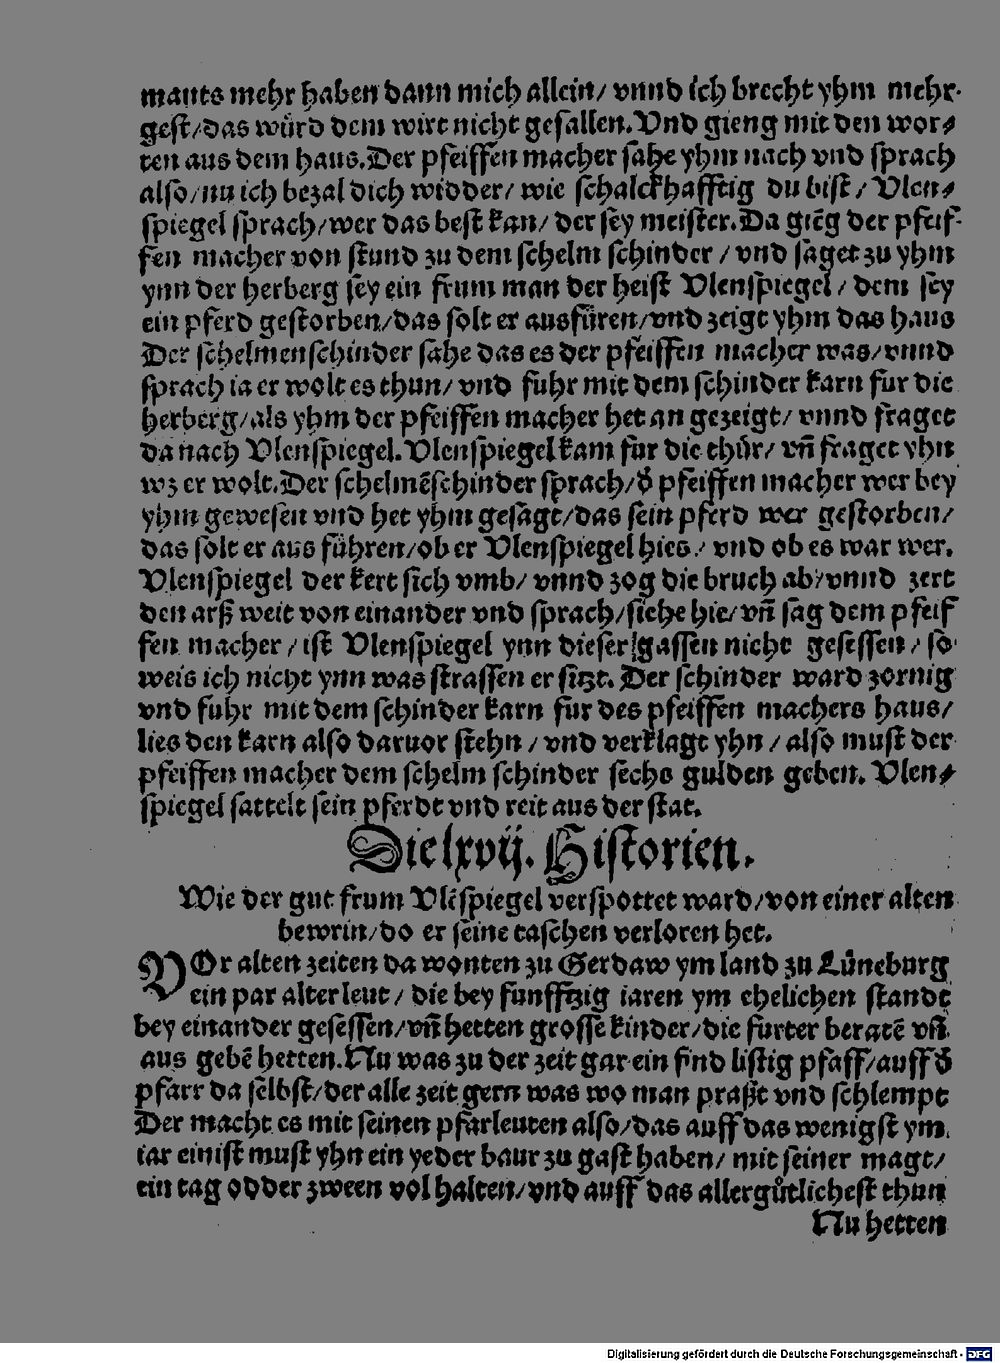 mants mehr haben dann mich allein/ vnnd ich brecht yhm mehr
gest/das würd dem wirt nicht gefallen. Vnd gieng mit den wor⸗
ten aus dem haus. Der pfeiffen macher sahe yhm nach vnd sprach
also/nu ich bezal dich widder/ wie schalckhafftig du bist/ Vlen⸗
spiegel sprach/wer das best kan/ der sey meister. Da giēg der pfeif⸗
fen macher von stund zu dem schelm schinder / vnd saget zu yhm
ynn der herberg sey ein frum man der heist Vlenspiegel/ dem sey
ein pferd gestorben/das solt er ausfüren/vnd zeigt yhm das haus
Der schelmenschinder sahe das es der pfeiffen macher was/vnnd
sprach ia er wolt es thun/ vnd fuhr mit dem schinder karn fur die
herberg/als yhm der pfeiffen macher het an gezeigt/ vnnd fraget
da nach Vlenspiegel. Vlenspiegel kam fur die thür/ vñ fraget yhn
wz er wolt. Der schelmēschinder sprach/d̕ pfeiffen macher wer bey
yhm gewesen vnd het yhm gesagt/das sein pferd wer gestorben/
das solt er aus führen/ob er Vlenspiegel hies / vnd ob es war wer.
Vlenspiegel der kert sich vmb/ vnnd zog die bruch ab/vnnd zert
den arß weit von einander vnd sprach/siehe hie/ vñ sag dem pfeif
fen macher / ist Vlenspiegel ynn dieser gassen nicht gesessen / so
weis ich nicht ynn was strassen er sitzt. Der schinder ward zornig
vnd fuhr mit dem schinder karn fur des pfeiffen machers haus/
lies den karn also daruor stehn / vnd verklagt yhn / also must der
pfeiffen macher dem schelm schinder sechs gulden geben. Vlen⸗
spiegel sattelt sein pferdt vnd reit aus der stat.
Die lxvij. Historien.
Wie der gut frum Vlēspiegel verspottet ward/von einer alten
bewrin/do er seine taschen verloren het.
VOr alten zeiten da wonten zu Gerdaw ym land zu Lüneburg
ein par alter leut / die bey funfftzig iaren ym ehelichen standt
bey einander gesessen/vñ hetten grosse kinder/die furter beratē vñ
aus gebē hetten. Nu was zu der zeit gar ein find listig pfaff/auff d̕
pfarr da selbst/der alle zeit gern was wo man praßt vnd schlempt
Der macht es mit seinen pfarleuten also/das auff das wenigst ym
iar einist must yhn ein yeder baur zu gast haben/ mit seiner magt/
ein tag odder zween vol halten/vnd auff das allergůtlichest thun
Nu hetten
Digitalisierung gefördert durch die Deutsche Forschungsgemeinschaft - DFG